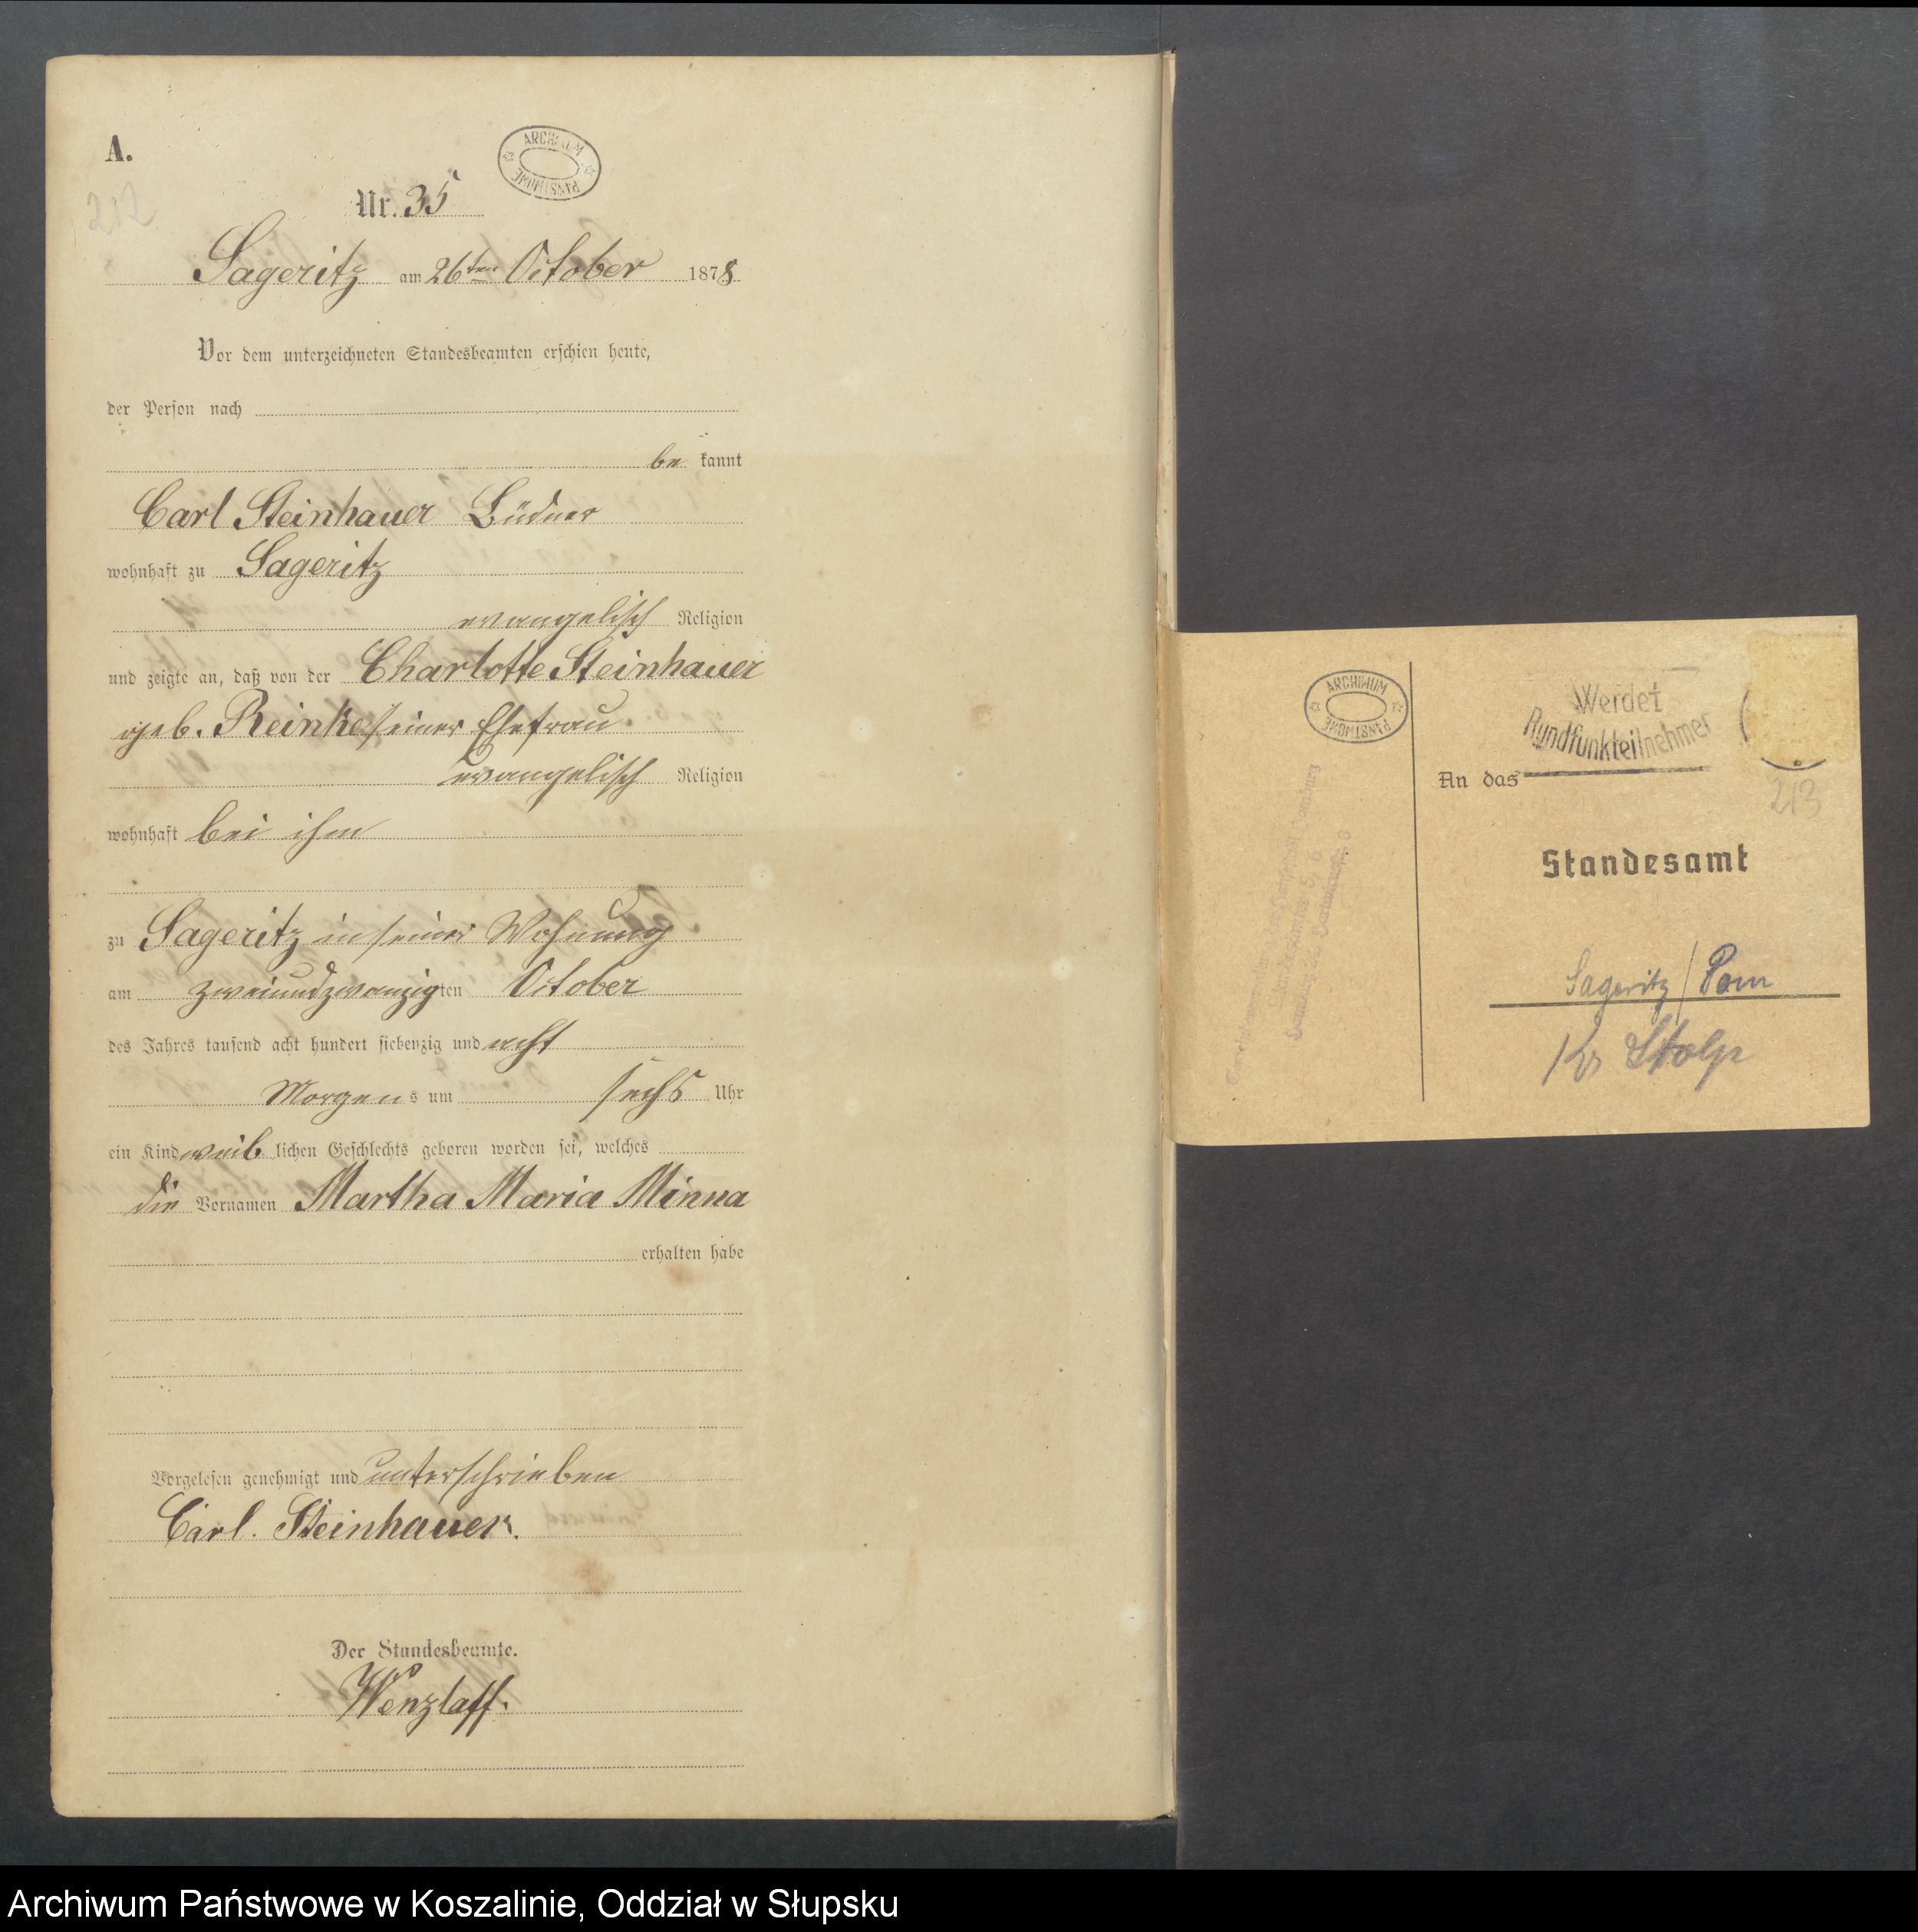 A.
ARCHIWUM PAŃSTWOWE
212
Nr. 35
Sageritz am 26ten October 1878
Vor dem unterzeichneten Standesbeamten erschien heute,
der Person nach
be kannt
Carl Steinhauer Büdner
wohnhaft zu Sageritz
evangelisch Religion
und zeigte an, daß von der Charlotte Steinhauer
geb. Reinke seiner Ehefrau
evangelisch Religion
wohnhaft bei ihm
zu Sageritz in seiner Wohnung
am zweiundzwanzigten October
des Jahres tausend acht hundert siebenzig und acht
Morgens um sechs Uhr
ein Kind weiblichen Geschlechts geboren worden sei, welches
die Vornamen Martha Maria Minna
erhalten habe
Vorgelesen genehmigt und unterschrieben
Carl. Steinhauer.
Der Standesbeamte.
Wenzlaff.
ARCHIWUM PAŃSTWOWE
Werdet
Rundfunkteilnehmer
An das
213
Standesamt
Sageritz/Pom
Kr Stolp
Archiwum Państwowe w Koszalinie, Oddział w Słupsku